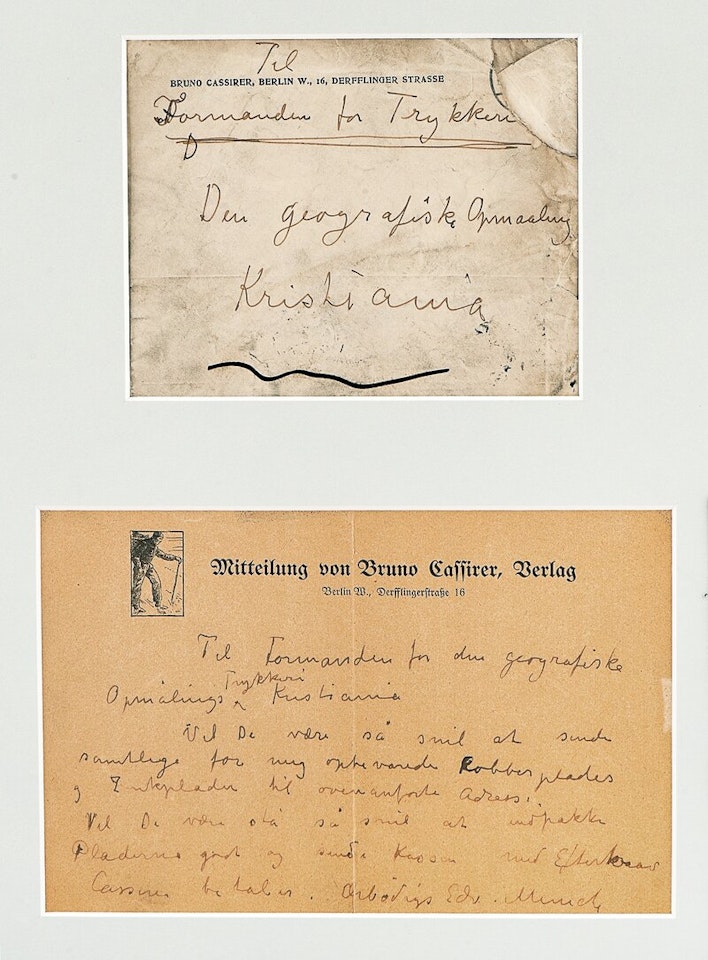 Til
BRUNO CASSIRER, BERLIN W., 16, DERFFLINGER STRASSE
Formanden for Trykkeri
D
Den geografiske Opmaaling
Kristiania
Mitteilung von Bruno Cassirer, Verlag
Berlin W., Derfflingerstraße 16
Til Formanden for den geografiske
Trykkeri
Opmålings Kristiania
Vil De være så snil at sende
samtlige for mig opbevarede Kobberplader
og Zinkplader til ovenanførte Adress.
Vil De være så snil at indpakke
Pladerne godt og sende Kassen med Efterkrav
Cassirer betaler. Ærbødigst Edv. Munch